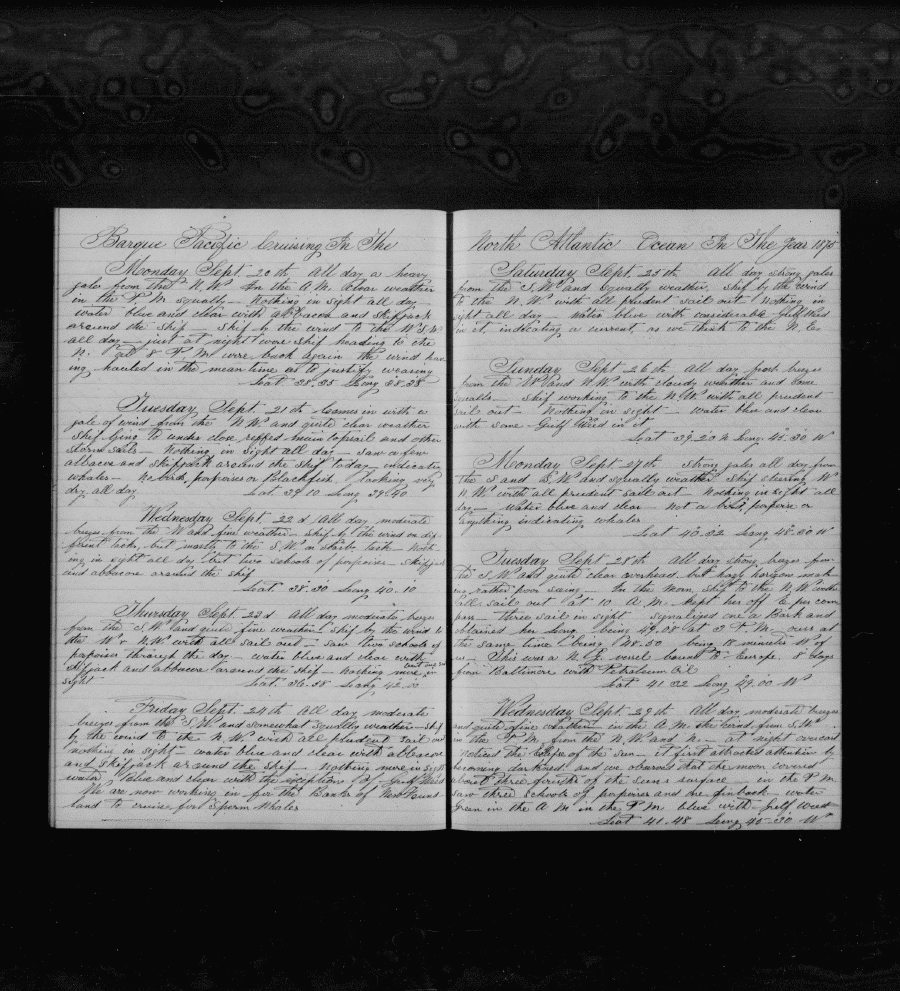 Barque Pacific Cruising In The
Monday Sept. 20 th All day a heavy
gales from the N.W. In the A.M. clear weather
in the P M squally - Nothing in sight all day
water blue and clear with albacoa and skipjack
around the ship - ship by the wind to the W.S.W
all day - just at night wore ship heading to the
N. at 8 P. M. wore back again the wind hav
ing hauled in the mean time as to justify wearing
Lat 38.35 Long 38.38
Tuesday Sept. 21 th Comes in with a
gale of wind from the N.W. and quite clear weather
Ship lying to under close reefed main topsail and other
storm sails - Nothing in sight all day - Saw a few
albacoa and skipjack around the ship today indicating
whales - No birds, porpoises or Blackfish, looking very
dry all day Lat. 39.10 Long 39.40
Wednesday Sept. 22 d All day moderate
breezes from the W and fine weather - Ship by the wind on dif
ferent tacks, but mostly to the S.W. on starb. tack - Noth
ing in sight all day but two schools of porpoises - Skipjack
and albacoa around the ship
Lat. 38.30 Long 40.10
Thursday Sept. 23 d All day moderate breezes
from the S.W. and quite fine weather. Ship by the wind to
the W & N.W. with all sail out - saw two schools of
porpoises through the day - water blue and clear with
skipjack and albacoa around the ship - Nothing more in
sight Lat. 38.58 Long 42.00
Friday Sept. 24 th All day moderate
breezes from the S.W. and somewhat squally weather - Ship
by the wind to the N.W. with all prudent sail out
nothing in sight - water blue and clear with albacoa
and skipjack around the ship - Nothing more in sight
water, blue and clear with the exceptions of Gulf Weed
We are now working in for the Banks of New Found
land to cruise for Sperm Whales
North Atlantic Ocean In The Year 1875
Saturday Sept. 25 th All day strong gales
from the S.W. and squally weather, ship by the wind
to the N.W. with all prudent sail out Nothing in
sight all day - water blue with considerable Gulf Weed
in it indicating a current, as we think to the N. E.
Sunday Sept 26 th All day fresh breezes
from the W and N.W. with cloudy weather and some
squalls - ship working to the N.W. with all prudent
sail out - Nothing in sight - water blue and clear
with some Gulf Weed in it
Lat 39.20 N Long. 45.30 W
Monday Sept. 27 th strong gales all day from
the S and S.W. and squally weather ship steering W
N W. with all prudent sail out - Nothing in sight all
day - water blue and clear - not a bird, porpoise or
anything indicating whales
Lat 40.32 Long 48.30 W
Tuesday Sept 28 th All day strong breezes from
the S.W. and quite clear overhead but hazy horizon mak
ing rather poor seeing - In the Morn, Ship to the N.W. with
full sail out at 10 A.M. kept her off by com
pass - three sail in sight signalized one a Bark and
obtained her Long being 49.08 at 3 P. M. ours at
the same time being 48.50 being 18 minutes W of
us - This was a N. E. vessel bound to Europe. 8 days
from Baltimore with Petroleum Oil
Lat 41.32 Long 49.00 W
Wednesday Sept. 29 th All day moderate breezes
and quite fine weather in the A M the wind from S.W
in the P.M from the N.W and N. - at night overcast
Noticed the Eclipse of the Sun - it first attracted attention by
becoming darkened, and we observed that the moon covered
about three fourths of the suns surface - in the P.M.
saw three schools of porpoises and one finback - water
green in the A M in the P M blue with Gulf Weed
Lat 41.48 Long 45.30 W